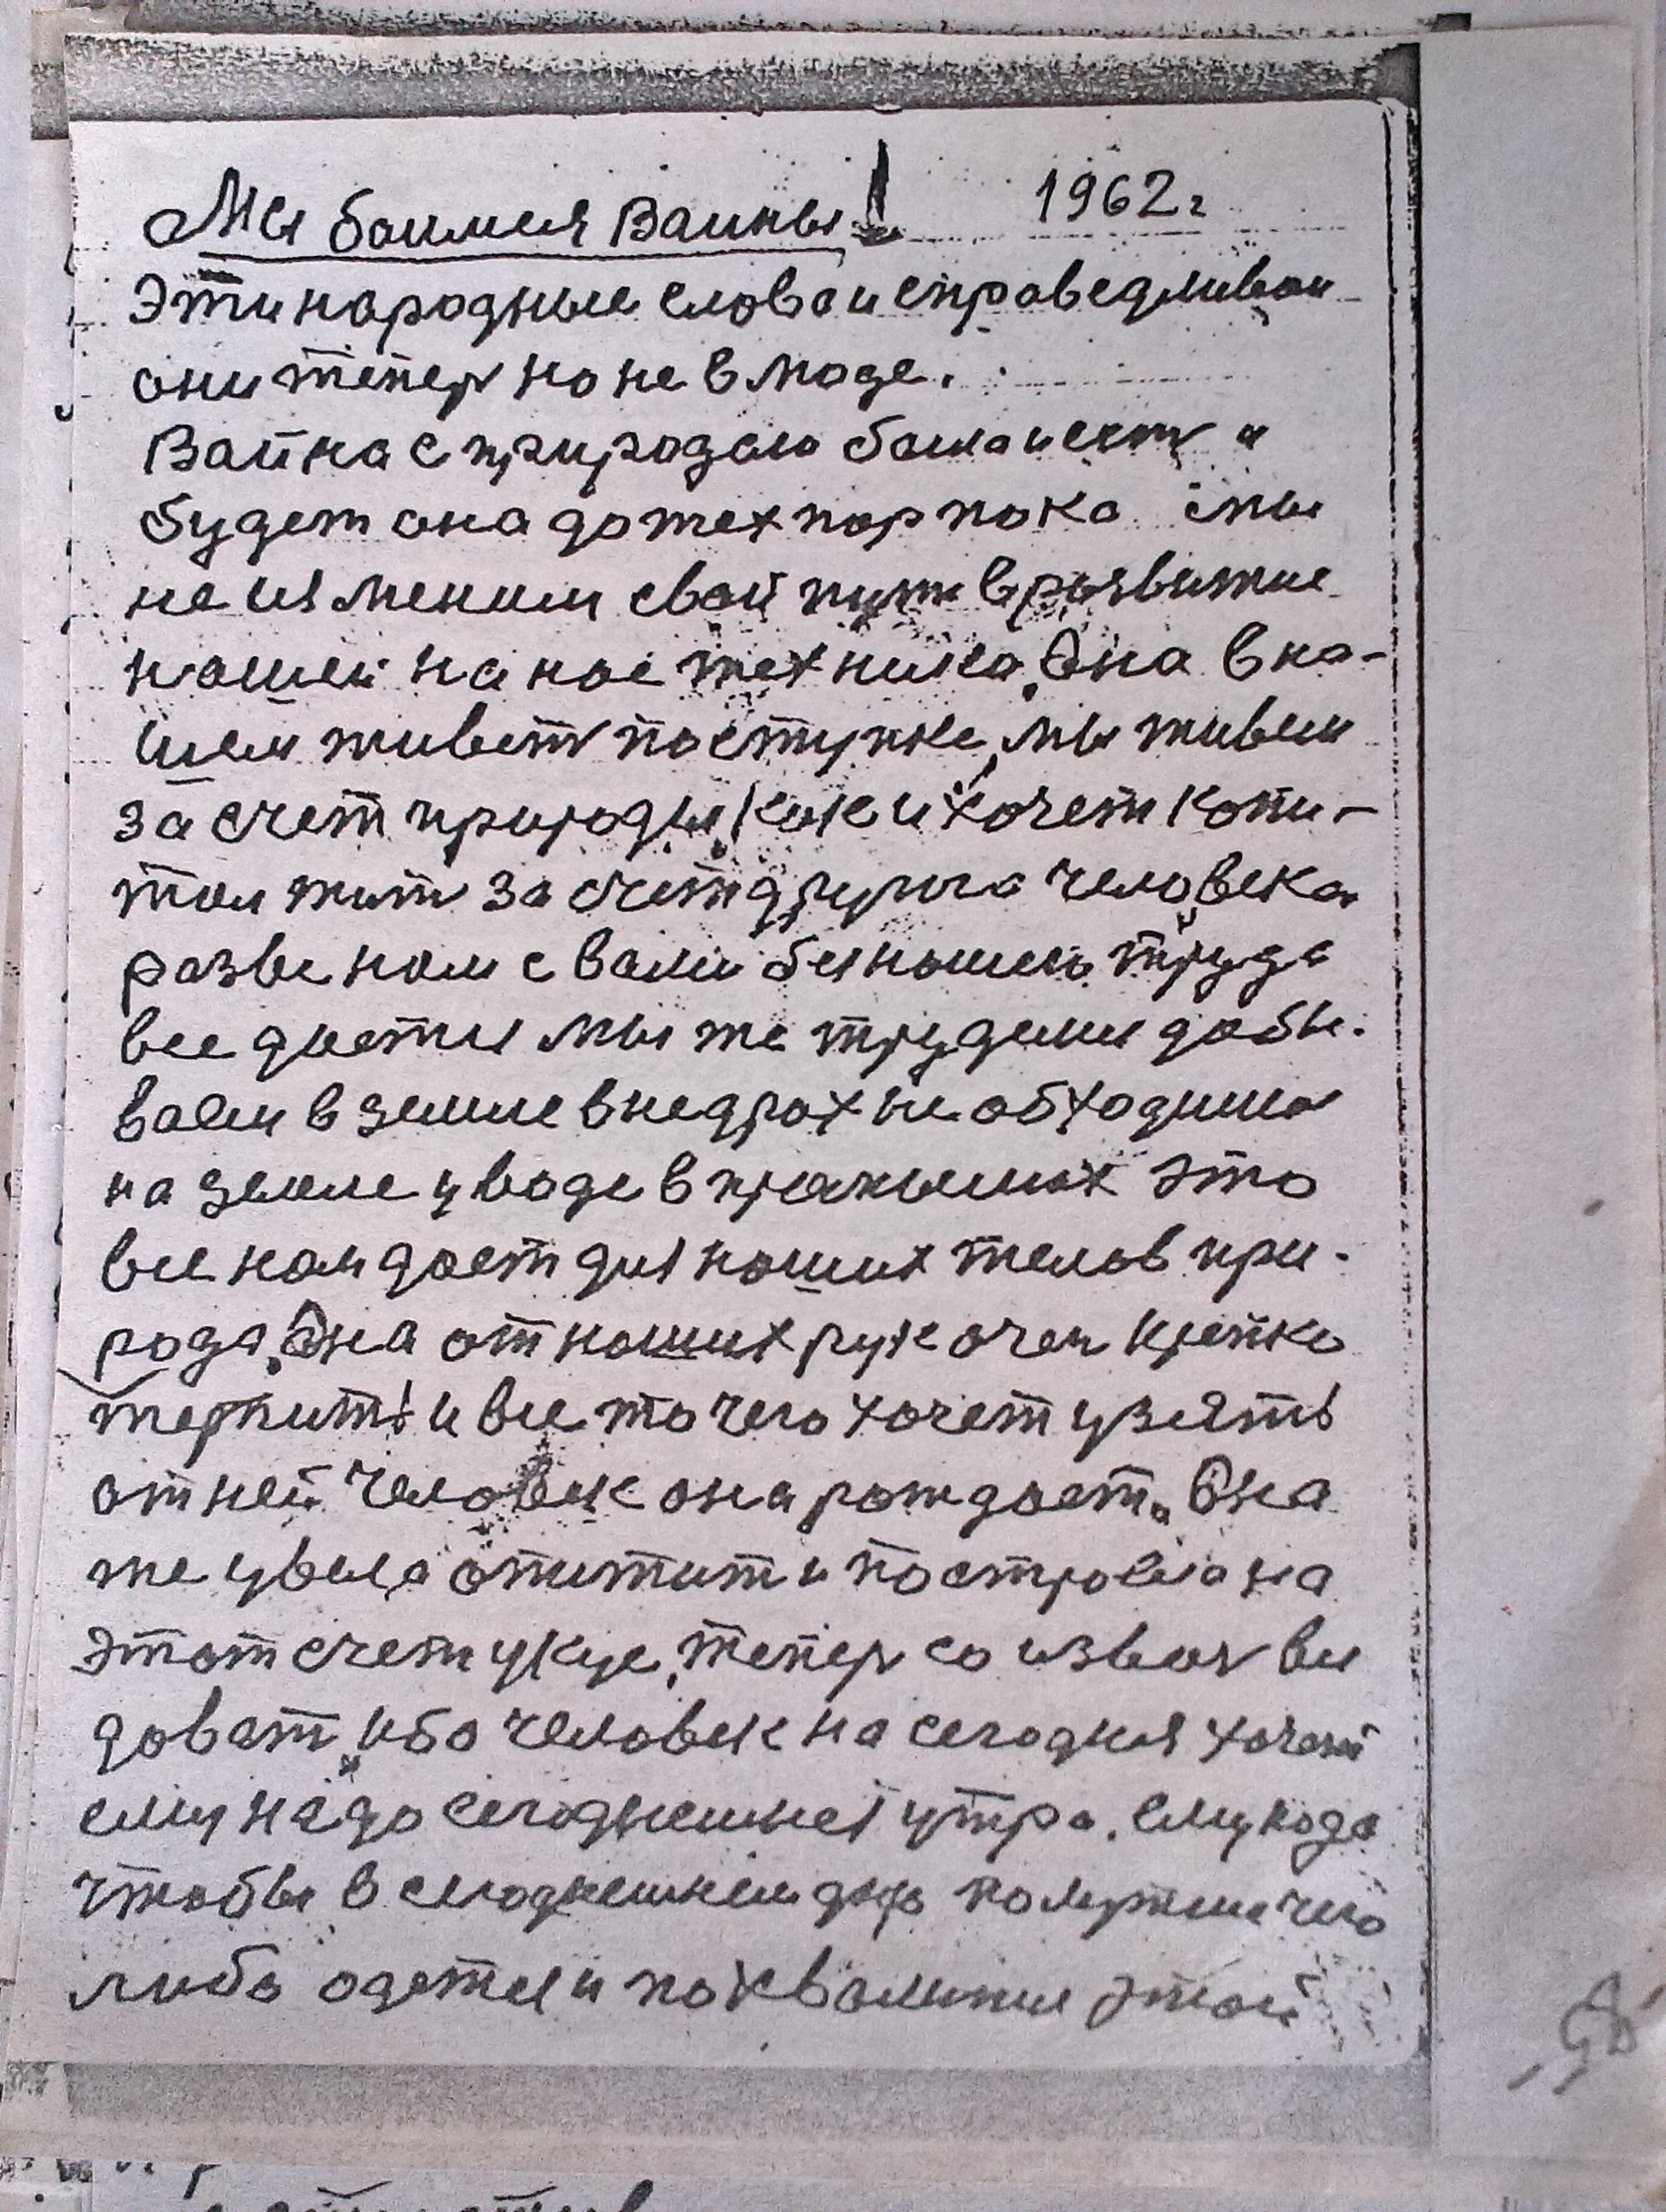 Мы боимся Вайны! 1962г
Эти народные слова и справедливаи
они тепер но не в моде.
Вайна с природаю была и ест и
будет она до тех пор пока мы
не изменим свой пут в развитие
нашей на ное техника, Она в на-
шем живет поступке, мы живем
за счет природы, как и хочет капи-
тал жит за счет друга человека
разве нам с вами без нашего труда
все дается мы же трудимся добы-
ваем в земле в недрах не обходима
на земле у воде в
все нам дает для наших телов при-
рода, Она от наших рук очен крепко
терпит! и все то чего хочет узять
от ней человек она рождает. Она
же увела апитит и построела на
этот счет укус, тепер со изволь вы
дават, ибо человек на сегодня хочет
ему надо сегоднешнея утра. ему нода
чтобы в сегоднешнем дня чего
либо одется и похвалится этой
58